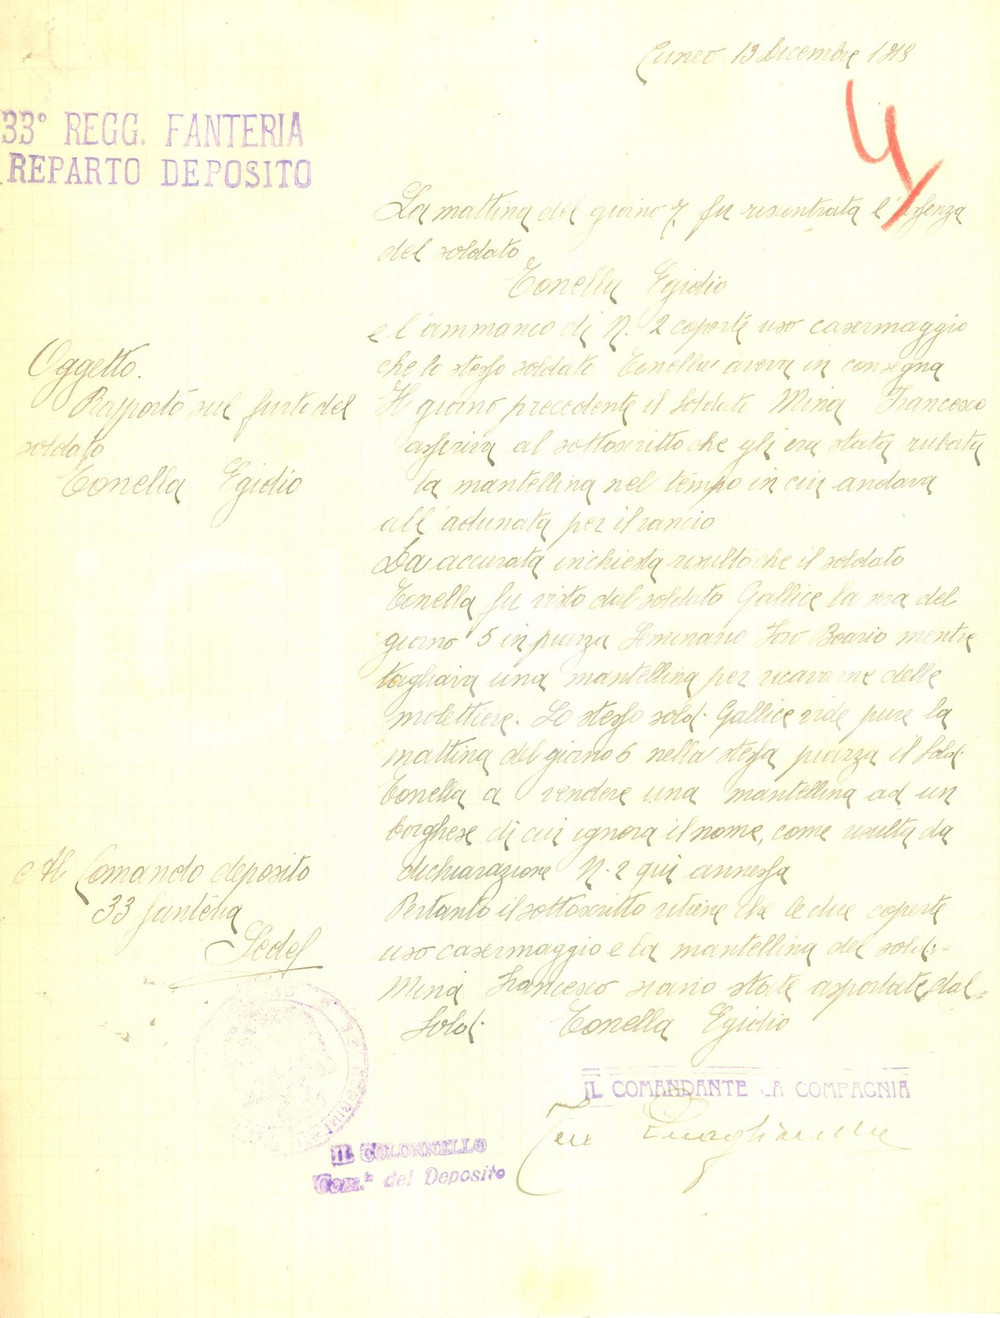 Cuneo 13 dicembre 1918
33° REGG. FANTERIA
REPARTO DEPOSITO
4
La mattina del giorno 7 fu riscontrata l'assenza
del soldato
Tonella Egidio
e l'ammanco di N. 2 coperte uso casermaggio
che lo stesso soldato Tonella aveva in consegna
Il giorno precedente il soldato Mina Francesco
asseriva al sottoscritto che gli era stata rubata
la mantellina nel tempo in cui andava
all'adunata per il rancio
Da accurata inchiesta risultò che il soldato
Tonella fu visto dal soldato Gallice la sera del
giorno 5 in piazza Seminario Foro Boario mentre
tagliava una mantellina per ricavarne delle
molettiere. Lo stesso sold. Gallice vide pure la
mattina del giorno 6 nella stessa piazza il Sold.
Tonella a vendere una mantellina ad un
borghese di cui ignora il nome, come risulta da
dichiarazione N. 2 qui annessa
Pertanto il sottoscritto ritiene che le due coperte
uso casermaggio e la mantellina del sold.
Mina Francesco siano state asportate dal
Sold. Tonella Egidio
Oggetto.
Rapporto sul furto del
soldato
Tonella Egidio
Al Comando deposito
33 fanteria
Sede
IL COMANDANTE LA COMPAGNIA
IL COLONNELLO
Com.te del Deposito